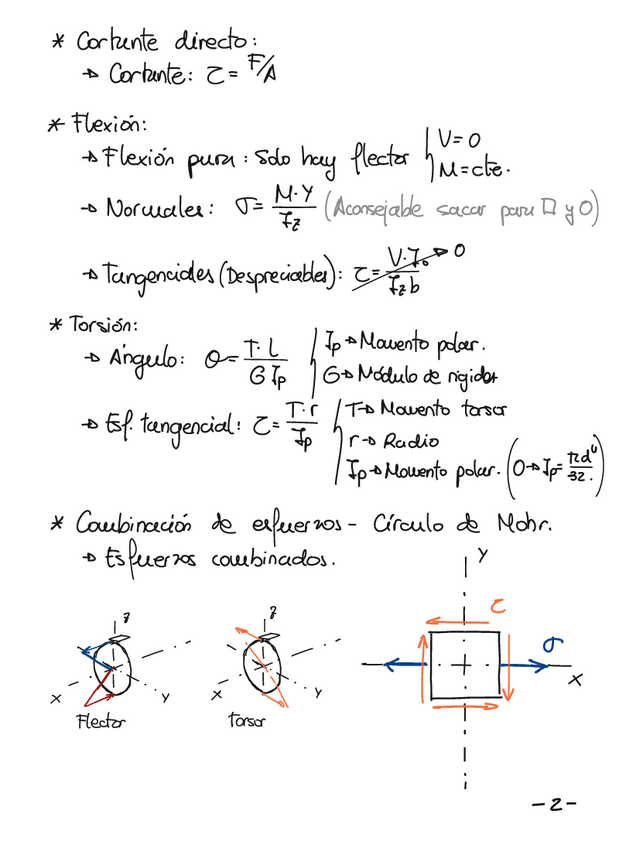 * Cortante directo:
→ Cortante: τ = F/A
* Flexión:
→ Flexión pura: Solo hay flector { V=0
M=cte.
→ Normales: σ = M·Y / Iz (Aconsejable sacar para □ y O)
→ Tangenciales (Despreciables): τ = V·Jo / Iz b → 0
* Torsión:
→ Ángulo: θ = T·L / G Ip
Ip → Momento polar.
G → Módulo de rigidez
→ Esf. tangencial: τ = T·r / Ip
T → Momento torsor
r → Radio
Ip → Momento polar. (O → Ip = πd⁴ / 32.)
* Combinación de esfuerzos - Círculo de Mohr.
→ Esfuerzos combinados.
z
X
Y
Flector
z
X
Y
Torsor
Y
τ
σ
X
-2-